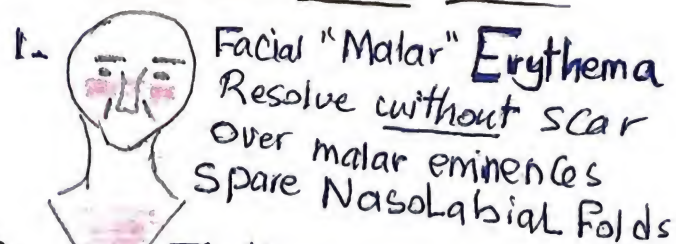 1- Facial "Malar" Erythema
Resolve without scar
over malar eminences
Spare NasoLabial Folds